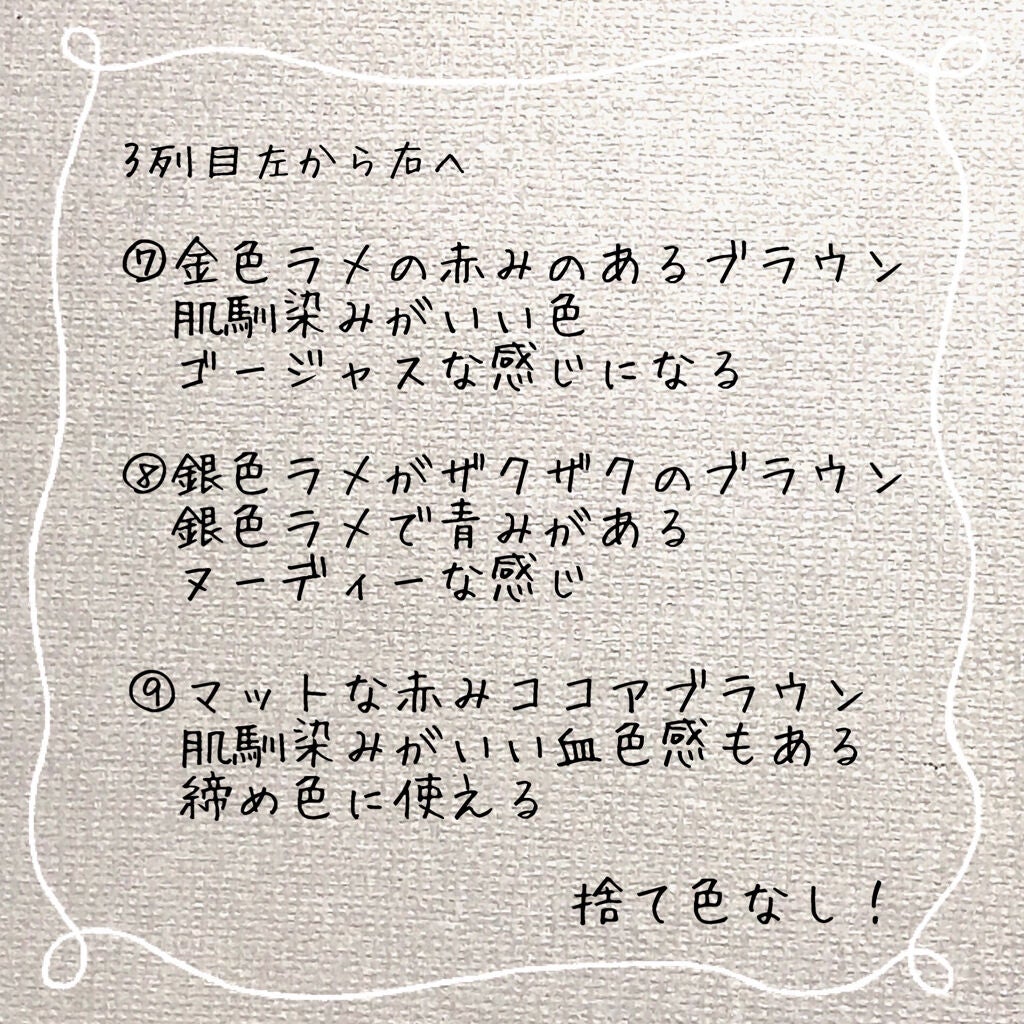 3列目左から右へ
⑦金色ラメの赤みのあるブラウン
肌馴染みがいい色
ゴージャスな感じになる
⑧銀色ラメがザクザクのブラウン
銀色ラメで青みがある
ヌーディーな感じ
⑨マットな赤みココアブラウン
肌馴染みがいい血色感もある
締め色に使える
捨て色なし！